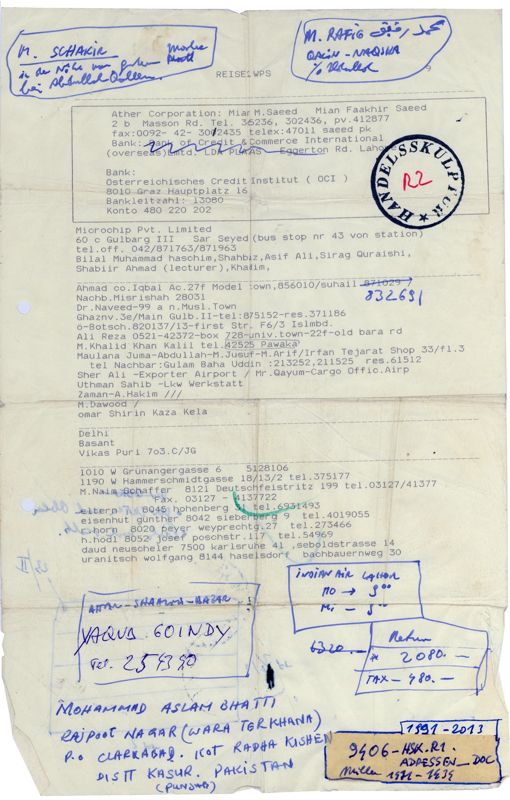 M. SCHAKIR
in der Nähe von
bei Abdullah
M. RAFIG محمد رفیق
QAGIN - NAQIKA
REISE.WPS 9
Ather Corporation: Miar M.Saeed Mian Faakhir Saeed
2 b Masson Rd. Tel. 36236, 302436, pv.412877
fax:0092- 42- 3002435 telex:47011 saeed pk
Bank: Bank of Credit & Commerce International
(overseas)Lmtd. LDA PLAAS Eggerton Rd. Lahor
Bank:
Österreichisches Credit Institut ( OCI )
8010 Graz Hauptplatz 16
Bankleitzahl: 13080
Konto 480 220 202
HANDELSSKULPTUR *
R2
Microchip Pvt. Limited
60 c Gulbarg III Sar Seyed(bus stop nr 43 von station)
tel.off. 042/871763/871963
Bilal Muhammad haschim,Shahbiz,Asif Ali,Sirag Quraishi,
Shabiir Ahmad (lecturer),Khadim,
Ahmad co.Iqbal Ac.27f Model town,856010/suhail 871029
832691
Nachb.Misrishah 28031
Dr.Naveed-99 a n.Musl.Town
Ghaznv.3e/Main Gulb.II-tel:875152-res.371186
ö-Botsch.820137/13-first Str. F6/3 Islmbd.
Ali Reza 0521-42372-box 728-univ.town-22f-old bara rd
M.Khalid Khan Kalil tel.42525 Pawaka
Maulana Juma-Abdullah-M.Jusuf-M.Arif/Irfan Tejarat Shop 33/fl.3
tel Nachbar:Gulam Baha Uddin :213252,211525 res.61512
Sher Ali -Exporter Airport / Mr.Qayum-Cargo Offic.Airp
Uthman Sahib -Lkw Werkstatt
Zaman-A.Hakim ///
M.Dawood /
omar Shirin Kaza Kela
Delhi
Basant
Vikas Puri 7o3.C/JG
1010 W Grünangergasse 6 5128106
1190 W Hammerschmidtgasse 18/13/2 tel.375177
M.Naim Schaffer 8121 Deutschfeistritz 199 tel.03127/41377
Fax. 03127 - 4137722
eltern 8045 hohenberg tel.6931493
eisenhut günther 8042 sieberberg 9 tel.4019055
g.horn 8020 beyer weyprechtg.27 tel.273466
h.hödl 8052 josef poschstr.117 tel.54969
daud neuscheler 7500 karlsruhe 41 ,seboldstrasse 14
uranitsch wolfgang 8144 haselsdorf bachbauernweg 30
INDIAN AIR LAHOR
MO → 9°°
Mi - 9°°
YAQUB GOINDY
Tel. 254390
6320
Return
2080.—
TAX — 480.—
MOHAMMAD ASLAM BHATTI
RAJPOOT NAGAR (WARA TERKHANA)
P.O CLARKABAD. KOT RADHA KISHEN
DISTT KASUR. PAKISTAN
(PUNJAB)
1991-2013
9406-HSK.R1.
ADRESSEN_DOC